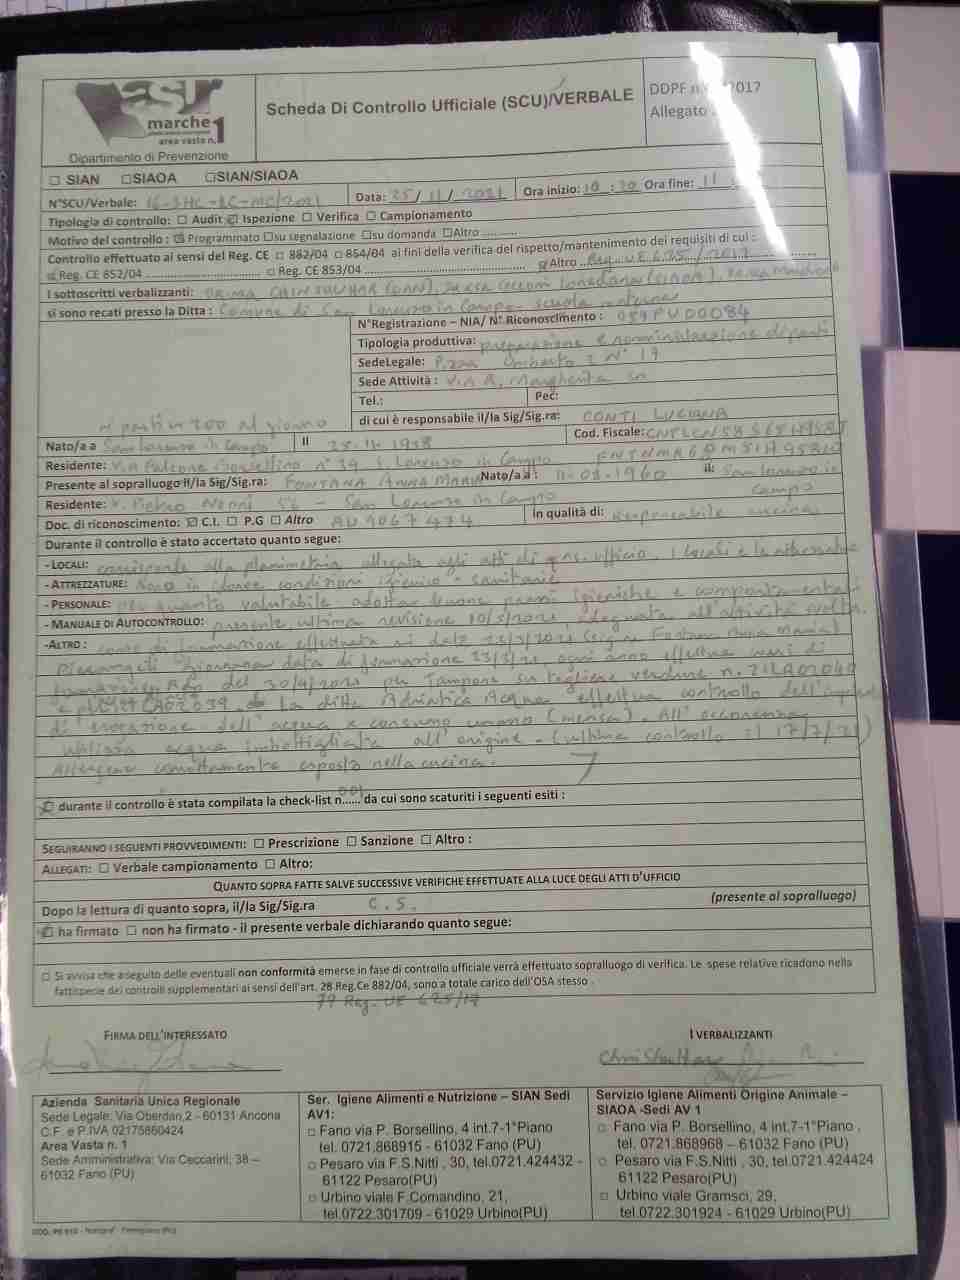 asur
marche 1
area vasta n.
Dipartimento di Prevenzione
Scheda Di Controllo Ufficiale (SCU)/VERBALE
DDPF n. 2017
Allegato
□ SIAN □SIAOA □SIAN/SIAOA
N°SCU/Verbale: Data: 25/11/2021 Ora inizio: 10:30 Ora fine: 11
Tipologia di controllo: □ Audit ☑ Ispezione □ Verifica □ Campionamento
Motivo del controllo : ☑ Programmato □su segnalazione □su domanda □Altro ..........
Controllo effettuato ai sensi del Reg. CE □ 882/04 □ 854/04 ai fini della verifica del rispetto/mantenimento dei requisiti di cui :
☑ Reg. CE 852/04 .......... □ Reg. CE 853/04 .......... ☑ Altro ..Reg. UE 625/2017
I sottoscritti verbalizzanti:
si sono recati presso la Ditta : Comune di San Lorenzo in Campo - scuola materna
N°Registrazione – NIA/ N° Riconoscimento : 054PU00084
Tipologia produttiva: preparazione e somministrazione di pasti
SedeLegale: P.zza Umberto I N° 17
Sede Attività : Via R. Margherita sn
Tel.: Pec:
n° pasti n 200 al giorno
di cui è responsabile il/la Sig/Sig.ra: CONTI LUCIANA
Nato/a a San Lorenzo in Campo Il 1958 Cod. Fiscale:
Residente: Via Falcone Borsellino n° 39 S. Lorenzo in Campo
Presente al sopralluogo il/la Sig/Sig.ra: FONTANA ANNA MARIA Nato/a a : 11-08-1960 il: San Lorenzo in Campo
Residente: v. Pietro Nenni 56 - San Lorenzo in Campo
Doc. di riconoscimento: ☑ C.I. □ P.G □ Altro AU9067474 In qualità di: Responsabile cucina
Durante il controllo è stato accertato quanto segue:
- LOCALI: corrispondente alla planimetria allegata agli atti di qns. ufficio. I locali e le attrezzature
- ATTREZZATURE: sono in idonee condizioni igienico - sanitarie
- PERSONALE: per quanto valutabile adotta buone prassi igieniche e comportamentali
- MANUALE DI AUTOCONTROLLO: presente ultima revisione 10/5/2021, adeguata all'attività svolta.
-ALTRO : corso di formazione effettuata in data (Sig.ra Fontana Anna Maria)
data di formazione 23/3/21, ogni anno effettua corsi di
formazione. del 30/9/2021 per Tampone su tagliere verdure n. 21LA02040
e La ditta Adriatica Acque effettua controllo dell'
di erogazione dell'acqua a consumo umano (mensa). All' occorrenza
utilizza acqua imbottigliata all'origine. (ultimo controllo il 17/7/21)
Allergeni correttamente esposto nella cucina.
☑ durante il controllo è stata compilata la check-list n. 001 da cui sono scaturiti i seguenti esiti :
SEGUIRANNO I SEGUENTI PROVVEDIMENTI: □ Prescrizione □ Sanzione □ Altro :
ALLEGATI: □ Verbale campionamento □ Altro:
QUANTO SOPRA FATTE SALVE SUCCESSIVE VERIFICHE EFFETTUATE ALLA LUCE DEGLI ATTI D'UFFICIO
Dopo la lettura di quanto sopra, il/la Sig/Sig.ra C.S. (presente al sopralluogo)
☑ ha firmato □ non ha firmato - il presente verbale dichiarando quanto segue:
□ Si avvisa che a seguito delle eventuali non conformità emerse in fase di controllo ufficiale verrà effettuato sopralluogo di verifica. Le spese relative ricadono nella
fattispecie dei controlli supplementari ai sensi dell'art. 28 Reg.Ce 882/04, sono a totale carico dell'OSA stesso .
79 Reg. UE 625/17
FIRMA DELL'INTERESSATO
I VERBALIZZANTI
Azienda Sanitaria Unica Regionale
Sede Legale: Via Oberdan,2 - 60131 Ancona
C.F. e P.IVA 02175860424
Area Vasta n. 1
Sede Amministrativa: Via Ceccarini, 38 –
61032 Fano (PU)
Ser. Igiene Alimenti e Nutrizione – SIAN Sedi
AV1:
□ Fano via P. Borsellino, 4 int.7-1°Piano
tel. 0721.868915 - 61032 Fano (PU)
□ Pesaro via F.S.Nitti , 30, tel.0721.424432 -
61122 Pesaro(PU)
□ Urbino viale F.Comandino, 21,
tel.0722.301709 - 61029 Urbino(PU)
Servizio Igiene Alimenti Origine Animale –
SIAOA -Sedi AV 1
□ Fano via P. Borsellino, 4 int.7-1°Piano ,
tel. 0721.868968 – 61032 Fano (PU)
□ Pesaro via F.S.Nitti , 30, tel.0721.424424
61122 Pesaro(PU)
□ Urbino viale Gramsci, 29,
tel.0722.301924 - 61029 Urbino(PU)